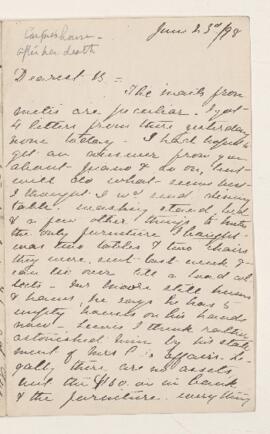 June 23rd/98
Carfrae house -
after her death
Dearest B =
The mails from
Metis are peculiar. I got
4 letters from there yesterday
none today. I had hoped to
get an answer from you
about piano & so on, but
will do what seems best
I thought I wd. send dining
table, washing stand, bed
& a few other things to Metis
the only furniture I bought
was two tables & two chairs
they were sent last week &
can lie over till a load col
lects - Mr Moore still hums
& haws, he says he has 5
empty houses on his hands
now - Lewis I think rather
astonished him by his state
ment of Mrs C's affairs. Le
gally there are no assets
but the $100. or in bank
& the furniture. everything